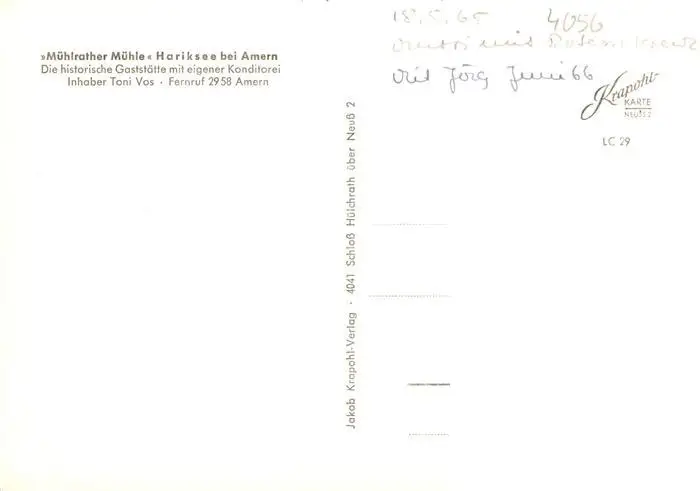 »Mühlrather Mühle« Hariksee bei Amern
Die historische Gaststätte mit eigener Konditorei
Inhaber Toni Vos · Fernruf 2958 Amern
18.5.65 4056
mit Rotem Kreuz
mit Jörg Juni 66
Krapohl-
KARTE
NEUSS 2
LC 29
Jakob Krapohl-Verlag · 4041 Schloß Hülchrath über Neuß 2